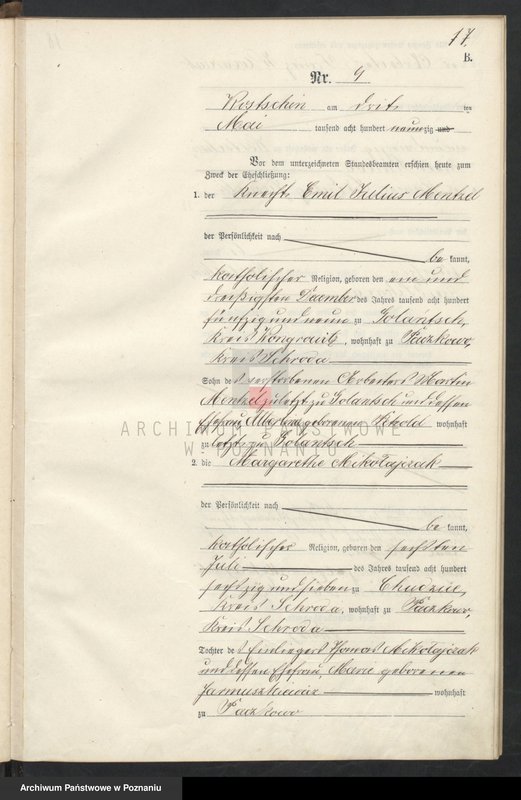 17.
B.
Nr. 9
Kostschin am drit ten
Mai tausend acht hundert neunzig und
Vor dem unterzeichneten Standesbeamten erschien heute zum
Zweck der Eheschließung:
1. der Knecht Emil Julius Menzel
der Persönlichkeit nach
be kannt,
katholischer Religion, geboren den ein und
dreißigsten Dezember des Jahres tausend acht hundert
fünfzig und neun zu Golantsch,
Kreis Wongrowitz, wohnhaft zu Paczkowo,
Kreis Schroda
Sohn des verstorbenen Arbeiters Martin
Menzel zuletzt zu Golantsch und dessen
Ehefrau geborenen wohnhaft
zu letzt zu Golantsch
2. die Margarethe Mikołajczak
der Persönlichkeit nach
be kannt,
katholischer Religion, geboren den sechsten
Juli des Jahres tausend acht hundert
sechzig und sieben zu
Kreis Schroda, wohnhaft zu Paczkowo,
Kreis Schroda
Tochter des Einliegers Thomas Mikołajczak
und dessen Ehefrau, Marie geborenen
wohnhaft
zu Paczkowo
ARCHIWUM PAŃSTWOWE
W POZNANIU
Archiwum Państwowe w Poznaniu